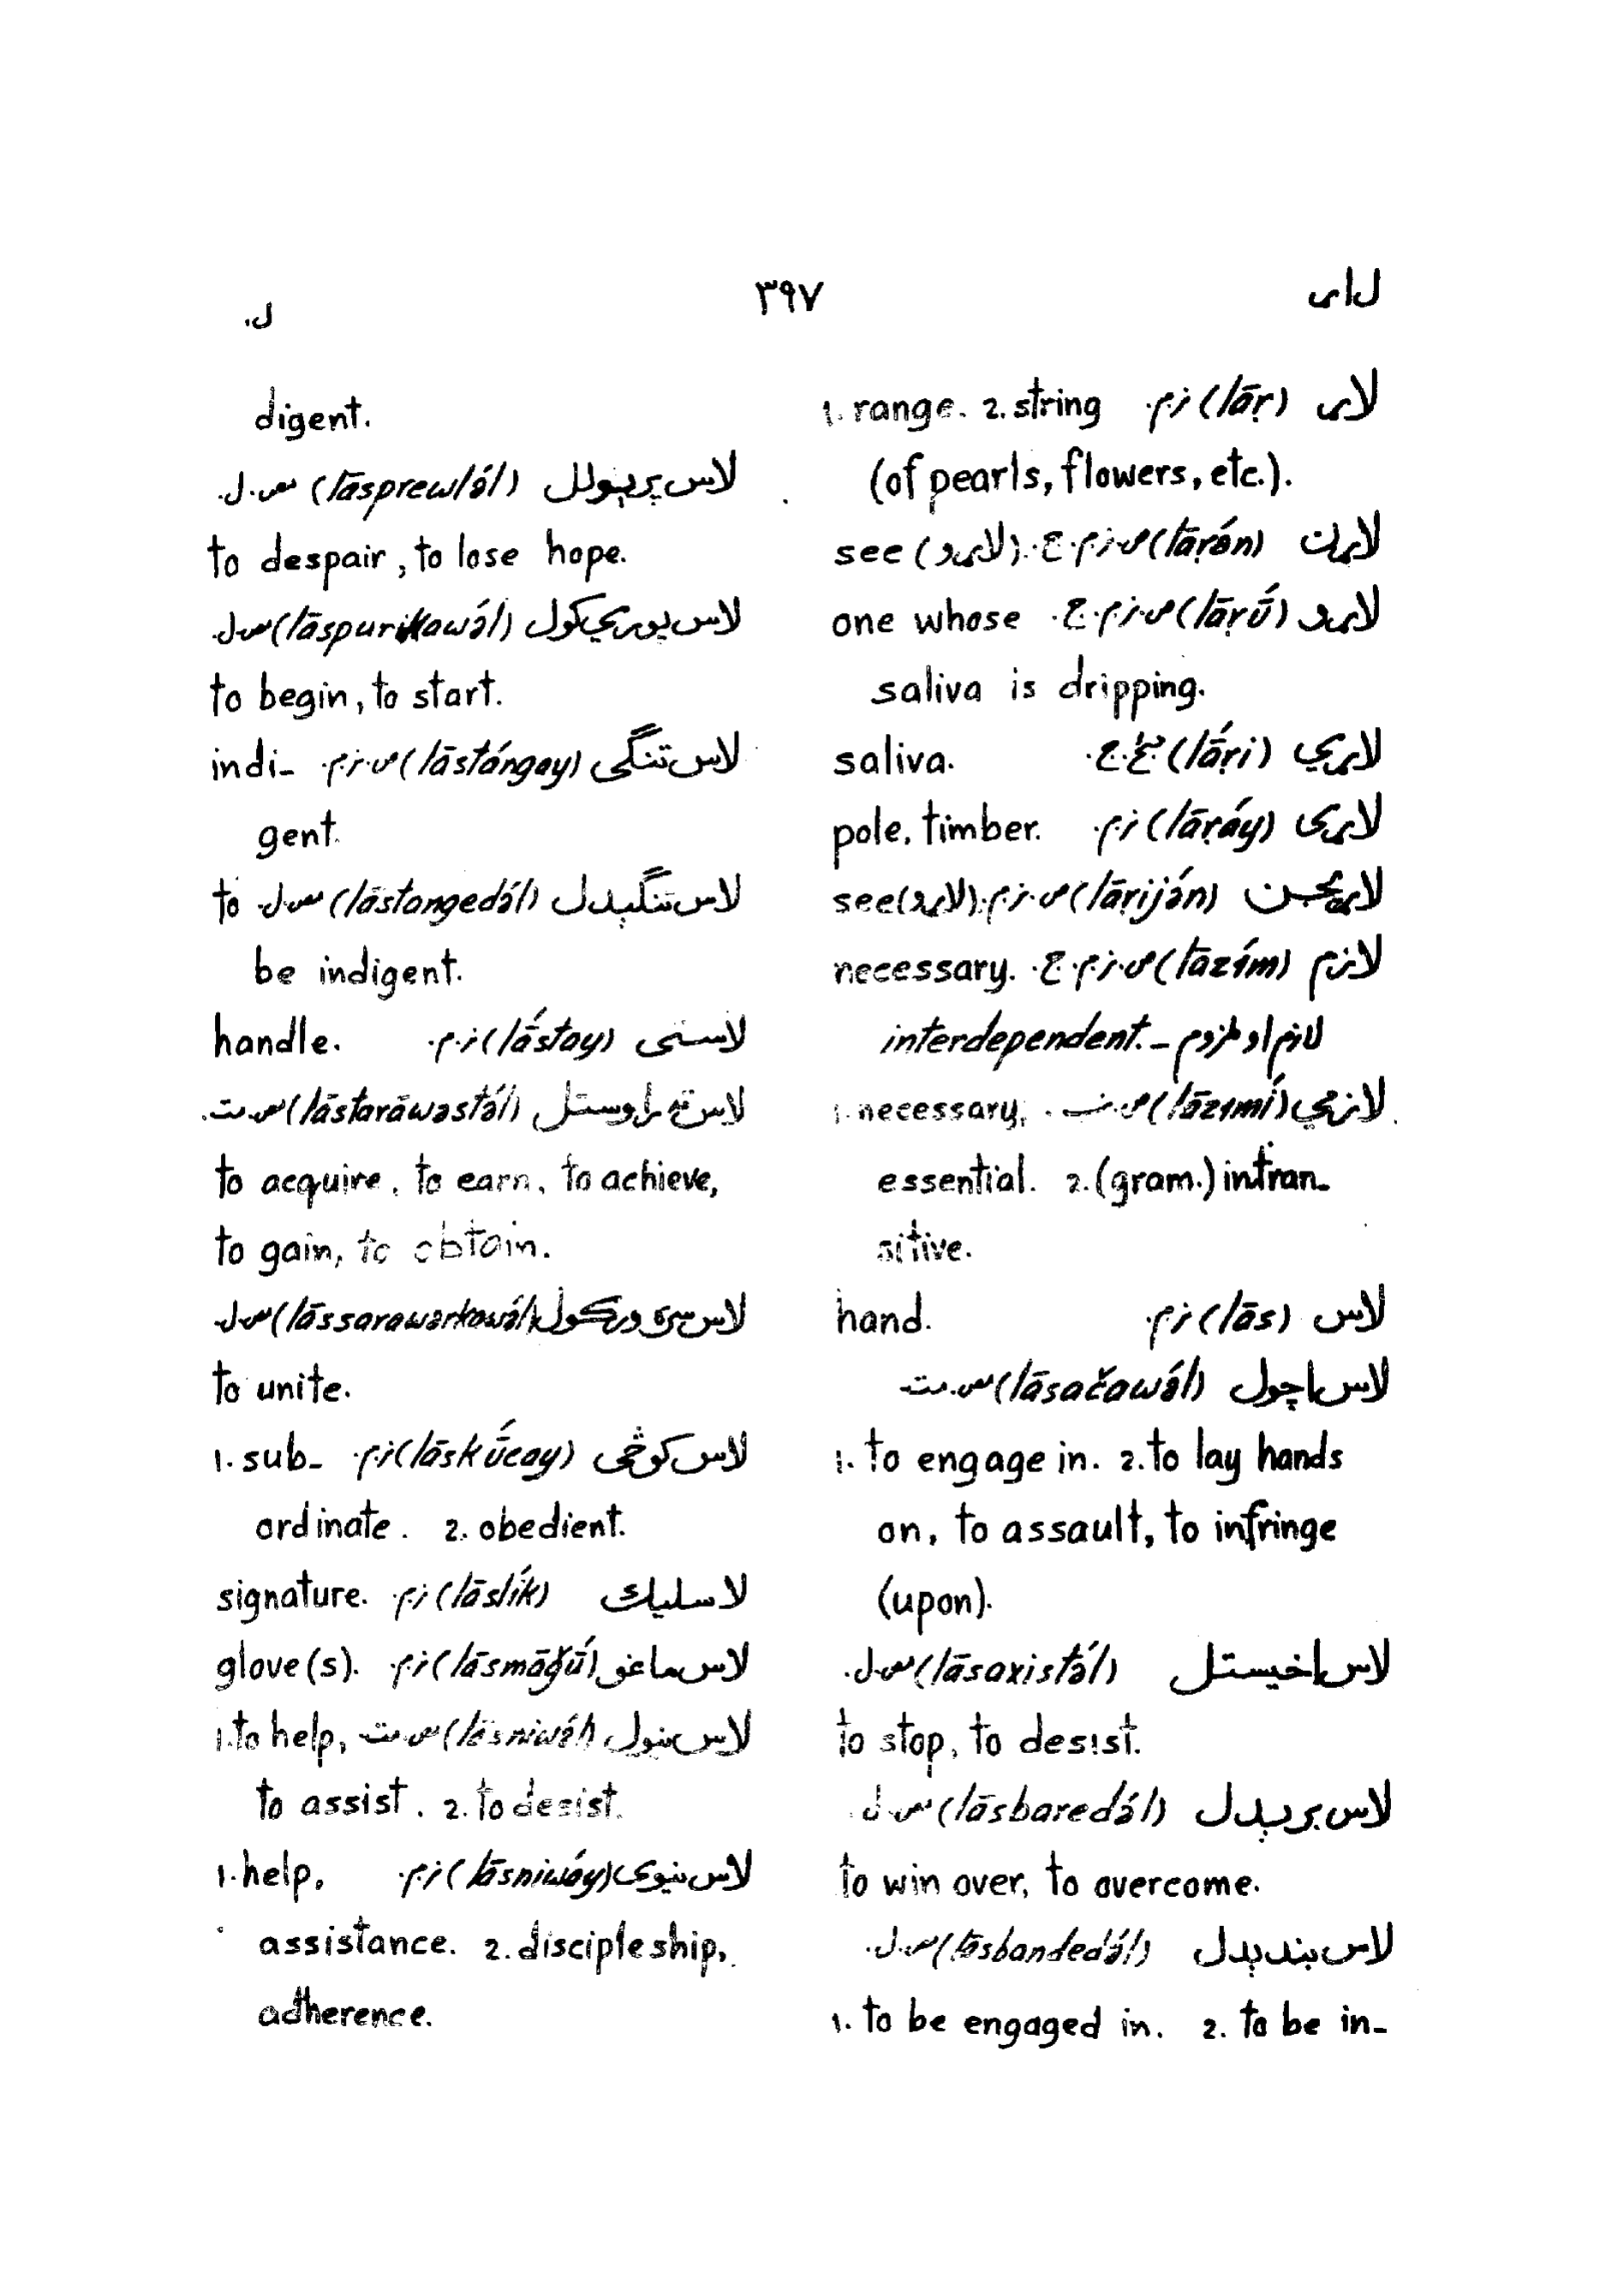 ل اړ
٣٩٧
ل.
لاړ (lāṛ) ز.م. 1. range. 2. string
(of pearls, flowers, etc.).
لاړن (lāṛə́n) ص.ز.م.ج. (لاړو) see
لاړو (lāṛū́) ص.ز.م.ج. one whose
saliva is dripping.
لاړي (lā́ṛi) ښځ.ج. saliva.
لاړى (lāṛáy) ز.م. pole, timber.
لاړيجن (lāṛijə́n) ص.ز.م. (لاړو) see
لازم (lāzím) ص.ز.م.ج. necessary.
لازم او ملزوم - interdependent.
لازمي (lāzɪmí) ص. 1. necessary,
essential. 2. (gram.) intran-
sitive.
لاس (lās) ز.م. hand.
لاس اچول (lāsačawə́l) مص.مت.
1. to engage in. 2. to lay hands
on, to assault, to infringe
(upon).
لاس اخيستل (lāsaxistə́l) مص.ل.
to stop, to desist.
لاس بريدل (lāsbaredə́l) مص.ل.
to win over, to overcome.
لاس بندېدل (lāsbandedə́l) مص.ل.
1. to be engaged in. 2. to be in-
digent.
لاس پرېولل (lāsprewlə́l) مص.ل.
to despair, to lose hope.
لاس پورې کول (lāspurikawə́l) مص.ل.
to begin, to start.
لاس تنگى (lāstángay) ص.ز.م. indi-
gent.
لاس تنگېدل (lāstangedə́l) مص.ل. to
be indigent.
لاستى (lā́stay) ز.م. handle.
لاس ته راوستل (lāstarāwastə́l) مص.مت.
to acquire, to earn, to achieve,
to gain, to obtain.
لاس سره ورکول (lāssarawərkawə́l) مص.ل.
to unite.
لاس کوڅى (lāskū́cay) ز.م. 1. sub-
ordinate. 2. obedient.
لاسليک (lāslík) ز.م. signature.
لاس ماغو (lāsmāğú) ز.م. glove(s).
لاس نيول (lāsniwə́l) مص.مت. 1. to help,
to assist. 2. to desist.
لاس نيوى (lāsniwáy) ز.م. 1. help,
assistance. 2. discipleship,
adherence.